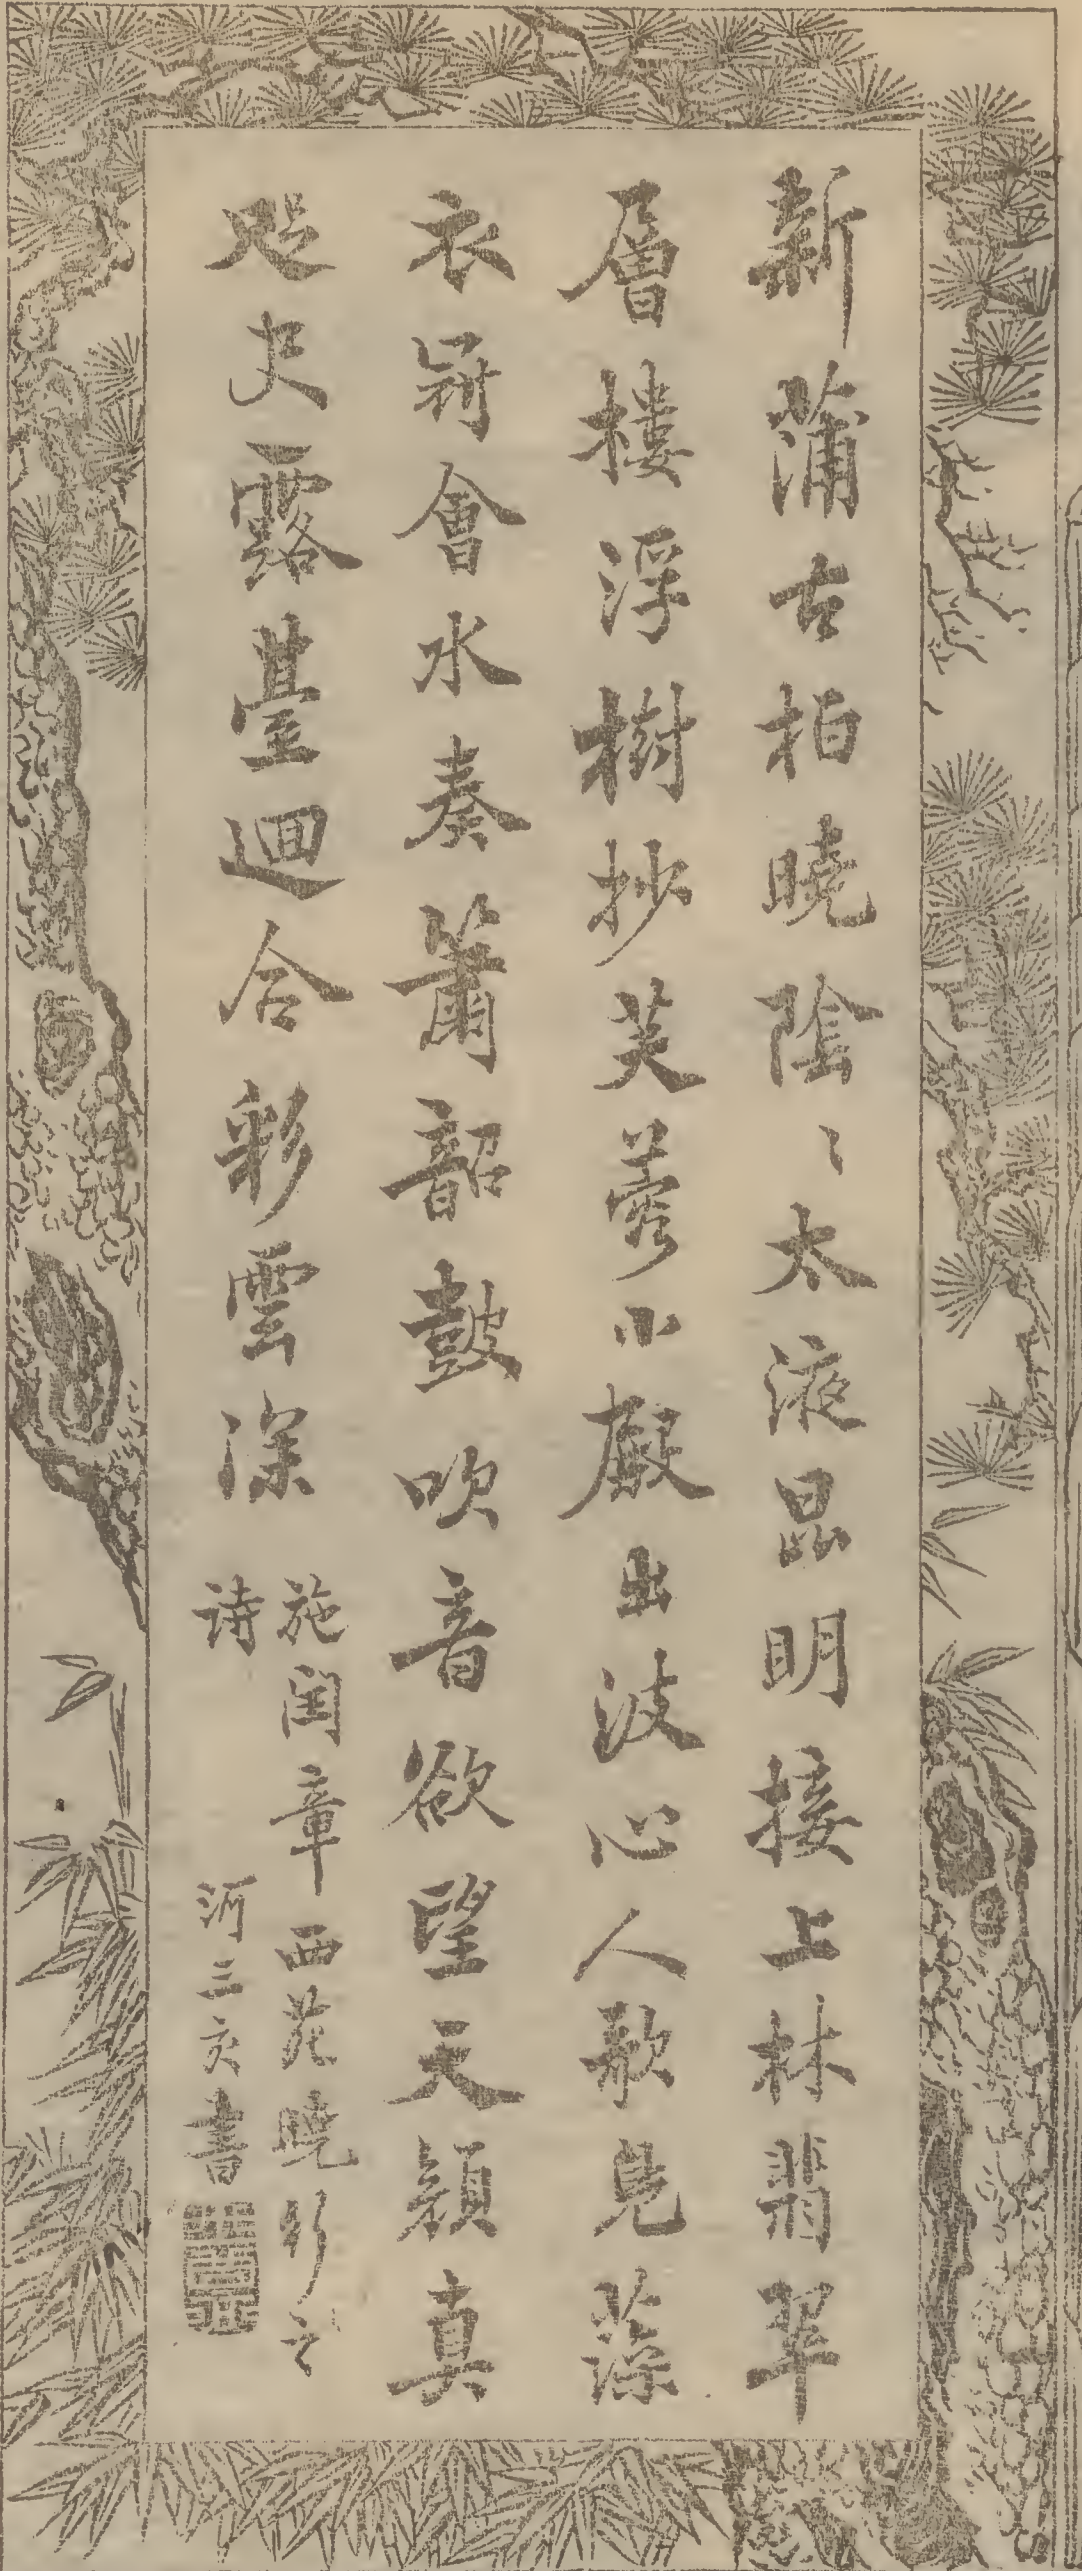 新蒲古柏曉陰〻太液昆明接上林翡翠
層樓浮樹抄芙蓉小殿出波心人歌鳧藻
衣冠會水奏簫韶鼓吹音欲望天顏真
咫尺露臺迴合彩雲深
施閏章西苑曉行之
詩 河三亥書